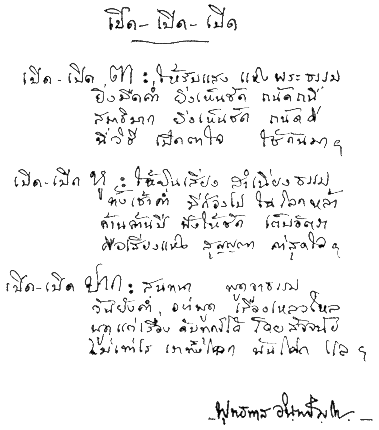 เปิด – เปิด – เปิด
เปิด – เปิด ตา : ให้รับแสง แห่งพระธรรม
ยิ่งมืดค่ำ ยิ่งเห็นชัด ถนัดถนี่
สมาธิมาก ยิ่งเห็นชัด ถนัดดี
นี่วิธี เปิดตาใจ ใช้กันมา ฯ
เปิด – เปิด หู : ให้ยินเสียง สำเนียงธรรม
ทั้งเช้าค่ำ มีก้องไป ในโลกหล้า
ล้านล้านปี ฟังให้ชัด เต็มอัตรา
คือเสียงแห่ง สุญญตา ค่าสุดใจ ฯ
เปิด – เปิด ปาก : สนทนา พูดจาธรรม
วันยังค่ำ อย่าพูด เรื่องเหลวไหล
พูดแต่เรื่อง ดับทุกข์ได้ โดยสัจจนัย
ไม่เท่าไร เราทั้งโลก พ้นโศก แล ฯ
พุทธทาส อินทปัญโญ